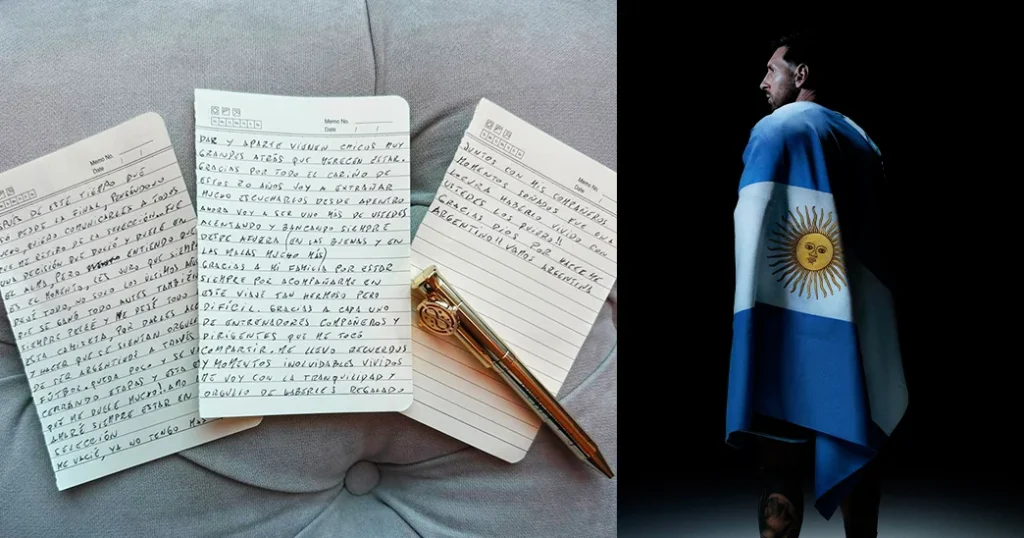 Memo No.
Date / /
DE ESTE TIEMPO QUE
PASÓ DESDE LA FINAL, PENSANDOLO
MUCHO, QUIERO COMUNICARLES A TODOS
QUE ME RETIRO DE LA SELECCIÓN. FUE
UNA DECISION QUE DOLIÓ Y DUELE EN
EL ALMA, PERO ENTIENDO QUE
ES EL MOMENTO. LES JURO QUE SIEMPRE
DEJÉ TODO, NO SOLO LOS ULTIMOS
QUE SE GANÓ TODO ANTES TAMBIÉN
SIEMPRE Y ME DEJÉ TODO
ESTA CAMISETA, POR DARLES
Y HACER QUE SE SIENTAN
DE SER ARGENTINO A TRAVÉS
FÚTBOL. QUEDA POCO Y SE VA
CERRANDO ETAPAS Y ESTA
QUE ME DUELE MUCHO!! AMO
AMARÉ SIEMPRE ESTAR EN
SELECCIÓN
ME VACIÉ, YA NO TENGO MÁS
Memo No.
Date / /
DAR Y APARTE VIENEN CHICOS MUY
GRANDES ATRÁS QUE MERECEN ESTAR.
GRACIAS POR TODO EL CARIÑO DE
ESTOS 20 AÑOS VOY A EXTRAÑAR
MUCHO ESCUCHARLOS DESDE ADENTRO
AHORA VOY A SER UNO MÁS DE USTEDES
ALENTANDO Y BANCANDO SIEMPRE
DESDE AFUERA (EN LAS BUENAS Y EN
LAS MALAS MUCHO MÁS)
GRACIAS A MI FAMILIA POR ESTAR
SIEMPRE POR ACOMPAÑARME EN
ESTE VIAJE TAN HERMOSO PERO
DIFÍCIL. GRACIAS A CADA UNO
DE ENTRENADORES COMPAÑEROS Y
DIRIGENTES QUE ME TOCÓ
COMPARTIR. ME LLEVO RECUERDOS
Y MOMENTOS INOLVIDABLES VIVIDOS
ME VOY CON LA TRANQUILIDAD Y
ORGULLO DE HABERLES REGALADO
Memo No.
Date / /
JUNTOS CON MIS COMPAÑEROS
MOMENTOS SOÑADOS FUE UNA
LOCURA HABERLO VIVIDO CON
USTEDES LOS QUIERO!!
GRACIAS DIOS POR HACERME
ARGENTINO!! VAMOS ARGENTINA